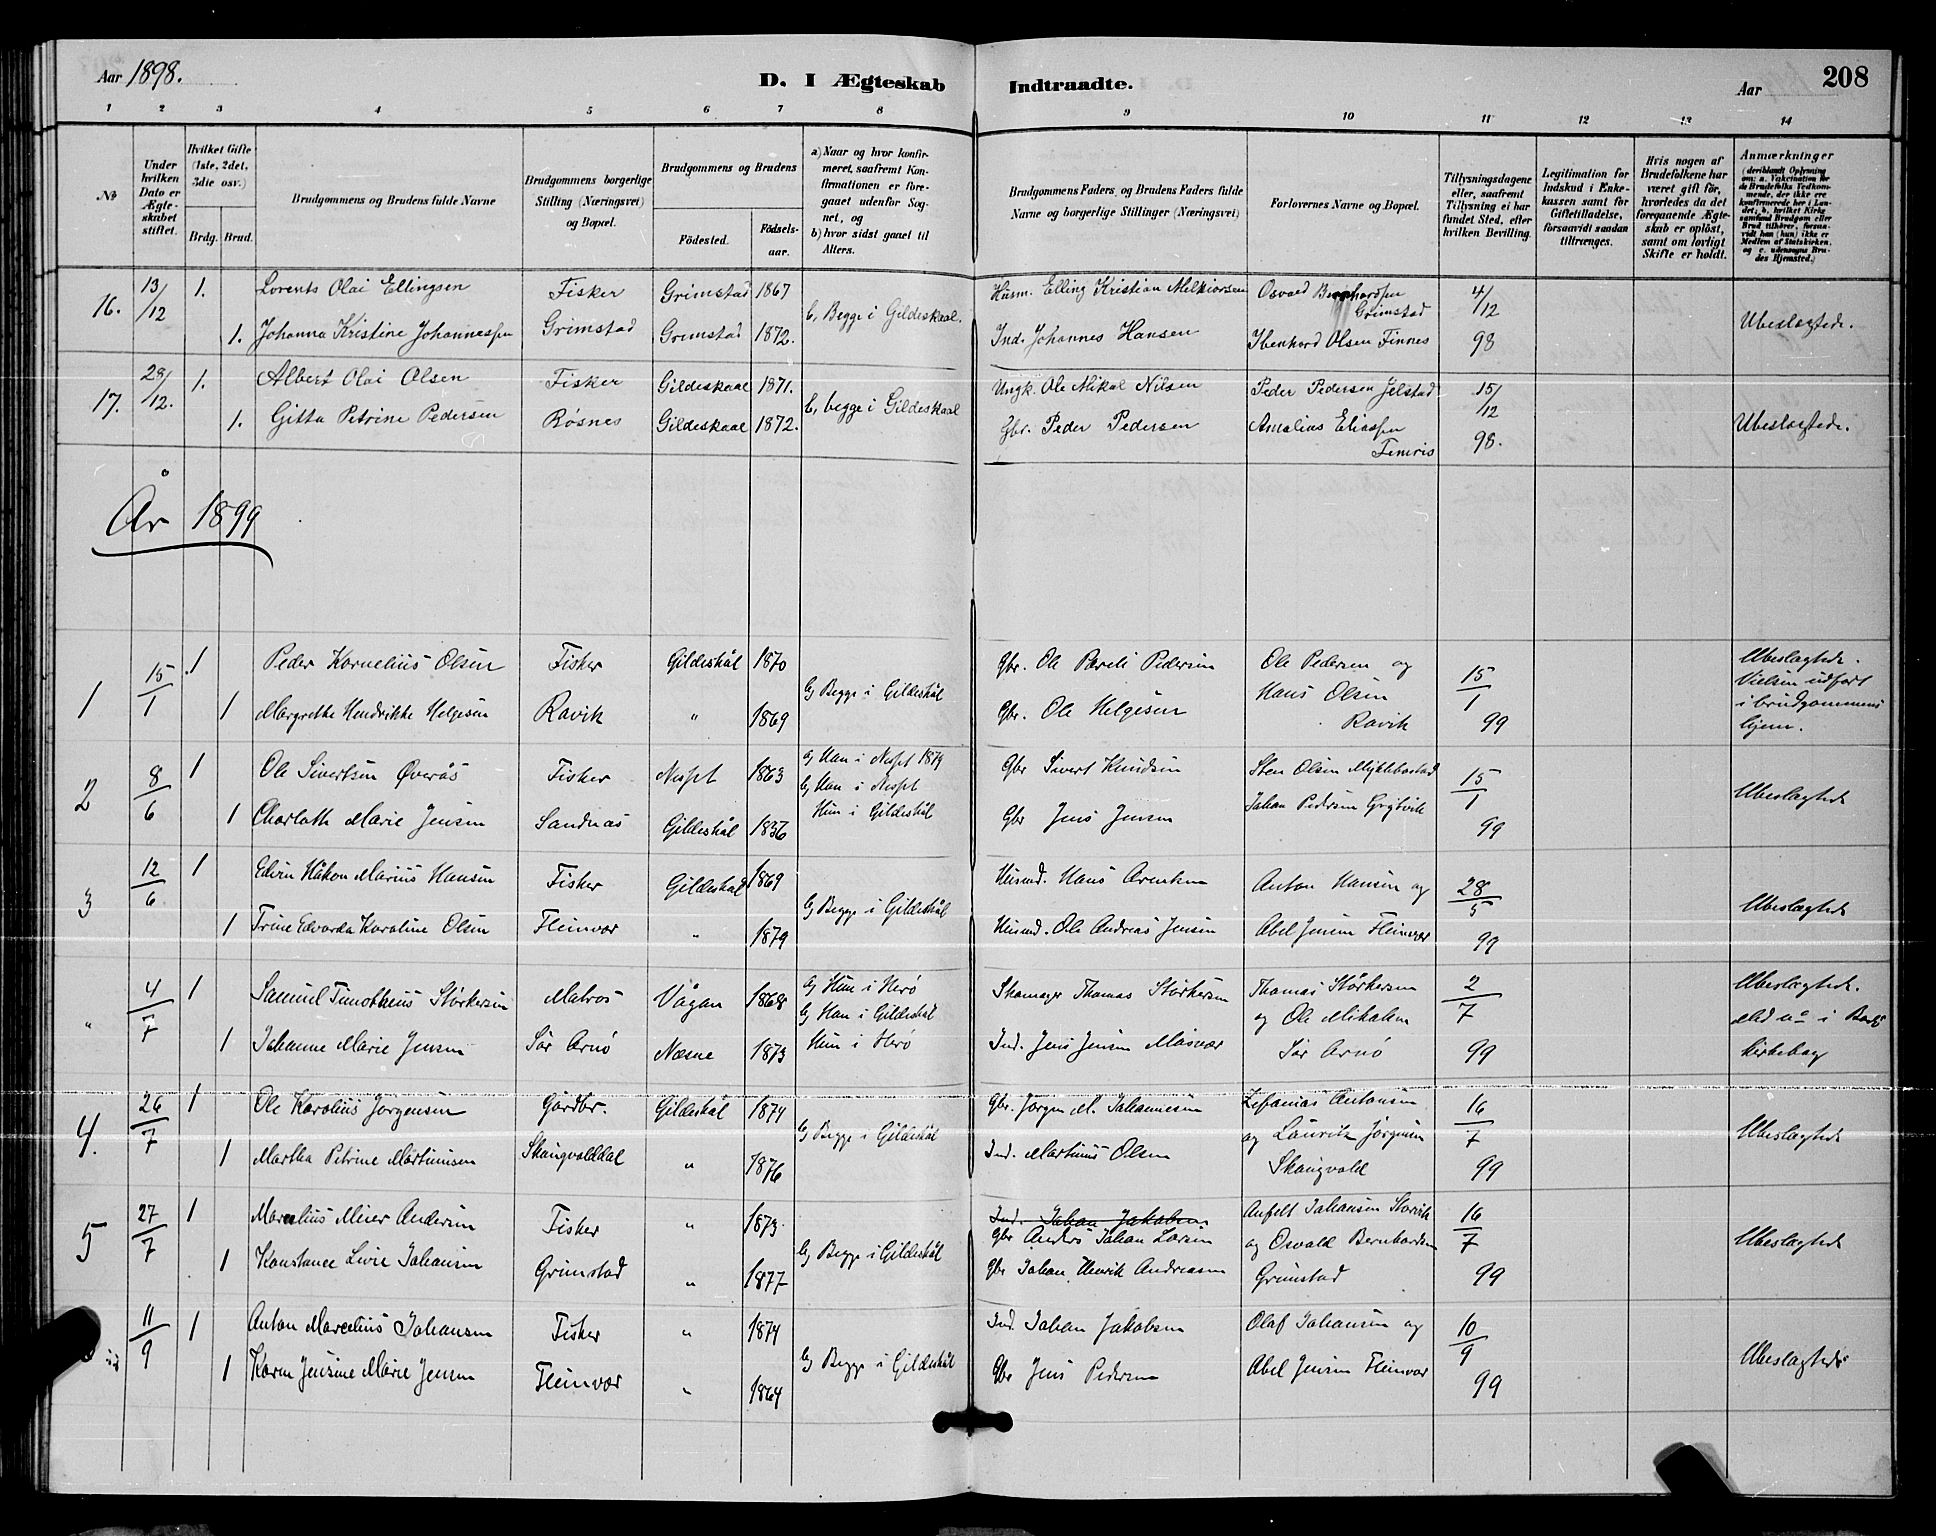 Aar 1898.
D. I Ægteskab Indtraadte.
Aar
208
1 2 3 4 5 6 7 8 9 10 11 12 13 14
No
Under hvilken Dato er Ægteskabet stiftet.
Hvilket Gifte (1ste, 2det, 3die osv.)
Brdg. Brud.
Brudgommens og Brudens fulde Navne
Brudgommens borgerlige Stilling (Næringsvei) og Bopæl.
Brudgommens og Brudens
Fødested. Fødselsaar.
a) Naar og hvor konfirmeret, saafremt Konfirmationen er foregaaet udenfor Sognet, og
b) hvor sidst gaaet til Alters.
Brudgommens Faders, og Brudens Faders fulde Navne og borgerlige Stillinger (Næringsvei)
Forlovernes Navne og Bopæl.
Tillysningsdagene eller, saafremt Tillysning ei har fundet Sted, efter hvilken Bevilling.
Legitimation for Indskud i Enkekassen samt for Giftetilladelse, forsaavidt saadan tiltrænges.
Hvis nogen af Brudefolkene har været gift før, hvorledes da det foregaaende Ægteskab er opløst, samt om lovligt Skifte er holdt.
Anmærkninger (deriblandt Oplysning om: a. Vakcination for de Brudefolks Vedkommende, der ikke ere konfirmerede her i Landet; b. hvilket Kirkesamfund Brudgom eller Brud tilhører, forsaavidt han (hun) ikke er Medlem af Statskirken, og c. udensogns Brudes Hjemsted.)
16. 13/12 1. Lorents Olai Ellingsen Fisker Grimstad 1867 b, Begge i Gildeskaal. Husm. Elling Kristian Melkiorsen Osvald Bernhardsen Grimstad 4/12
1. Johanna Kristine Johannessen Grimstad Grimstad 1872. Ind. Johannes Hansen Ibenhard Olsen Finnes 98 Ubeslægtede.
17. 28/12. 1. Albert Olai Olsen Fisker Gildeskaal 1871. b, begge i Gildeskaal Ungk. Ole Mikal Nilsen Peder Pedersen Jelstad 15/12
1. Gitta Petrine Pedersen Røsnes Gildeskaal 1872. Gbr. Peder Pedersen Amalius Eliassen 98. Ubeslægtede.
År 1899
1 15/1 1 Peder Kornelius Olsen Fisker Gildeskål 1870 b) Begge i Gildeskål Gbr. Ole Pareli Pedersen Ole Pedersen og 15/1 Ubeslægtede. Vielsen udført i brudgommens hjem.
1 Margrethe Hendrikke Helgesen Ravik " 1869 Gbr. Ole Helgesen Hans Olsen Ravik 99
2 8/6 1 Ole Sivertsen Øverås Fisker Nesset 1863 a) Han i Nesset 1879 Gbr Sivert Knudsen Sten Olsen Myklebostad 15/1
b) Han i Nesset
1 Charloth Marie Jensen Sandnes Gildeskål 1836 Hun i Gildeskål Gbr Jens Jensen Johan Pedersen 99 Ubeslægtede
3 12/6 1 Edvin Håkon Marius Hansen Fisker Gildeskål 1869 b) Begge i Gildeskål Husmd. Hans Arentsen Anton Hansen og 28/5
1 Trine Edvarda Karoline Olsen Fleinvær " 1879 Husmd. Ole Andreas Jensen Abel Jensen Fleinvær 99 Ubeslægtede
" 4/7 1 Samuel Timotheus Størkersen Matros Vågan 1868 a) Hun i Herø Skomager Thomas Størkersen Thomas Størkersen 2/7 Ubeslægtede.
b) Han i Gildeskål og Ole Mikalsen Med no i Bodø kirkebog
1 Johanne Marie Jensen Sør Arnø Næsne 1873 Hun i Herø Ind. Jens Jensen Måsvær Sør Arnø 99
4. 26/7 1 Ole Karolius Jørgensen Gårdbr. Gildeskål 1874 b) Begge i Gildeskål Gbr. Jørgen M. Johannesen Zefanias Antonsen 16/7
1 Martha Petrine Martinusen Skaugvolddal " 1876 Ind. Martinus Olsen og Lauritz Jørgensen Skaugvold 99 Ubeslægtede
5 27/7 1 Marcelius Meier Andersen Fisker " 1873. b) Begge i Gildeskål Ind. Johan Jakobsen Anfelt Johansen Storvik 16/7
Gbr Anders Johan Larsen og Osvald Bernhardsen
1 Konstance Livie Johansen Grimstad " 1877 Gbr Johan Henrik Andreasen Grimstad 99 Ubeslægtede
11/9 1 Anton Marcelius Johansen Fisker " 1874 b) Begge i Gildeskål Ind. Johan Jakobsen Olaf Johansen og 10/9
1 Karen Jensine Marie Jensen Fleinvær " 1864 Gbr Jens Pedersen Abel Jensen Fleinvær 99 Ubeslægtede